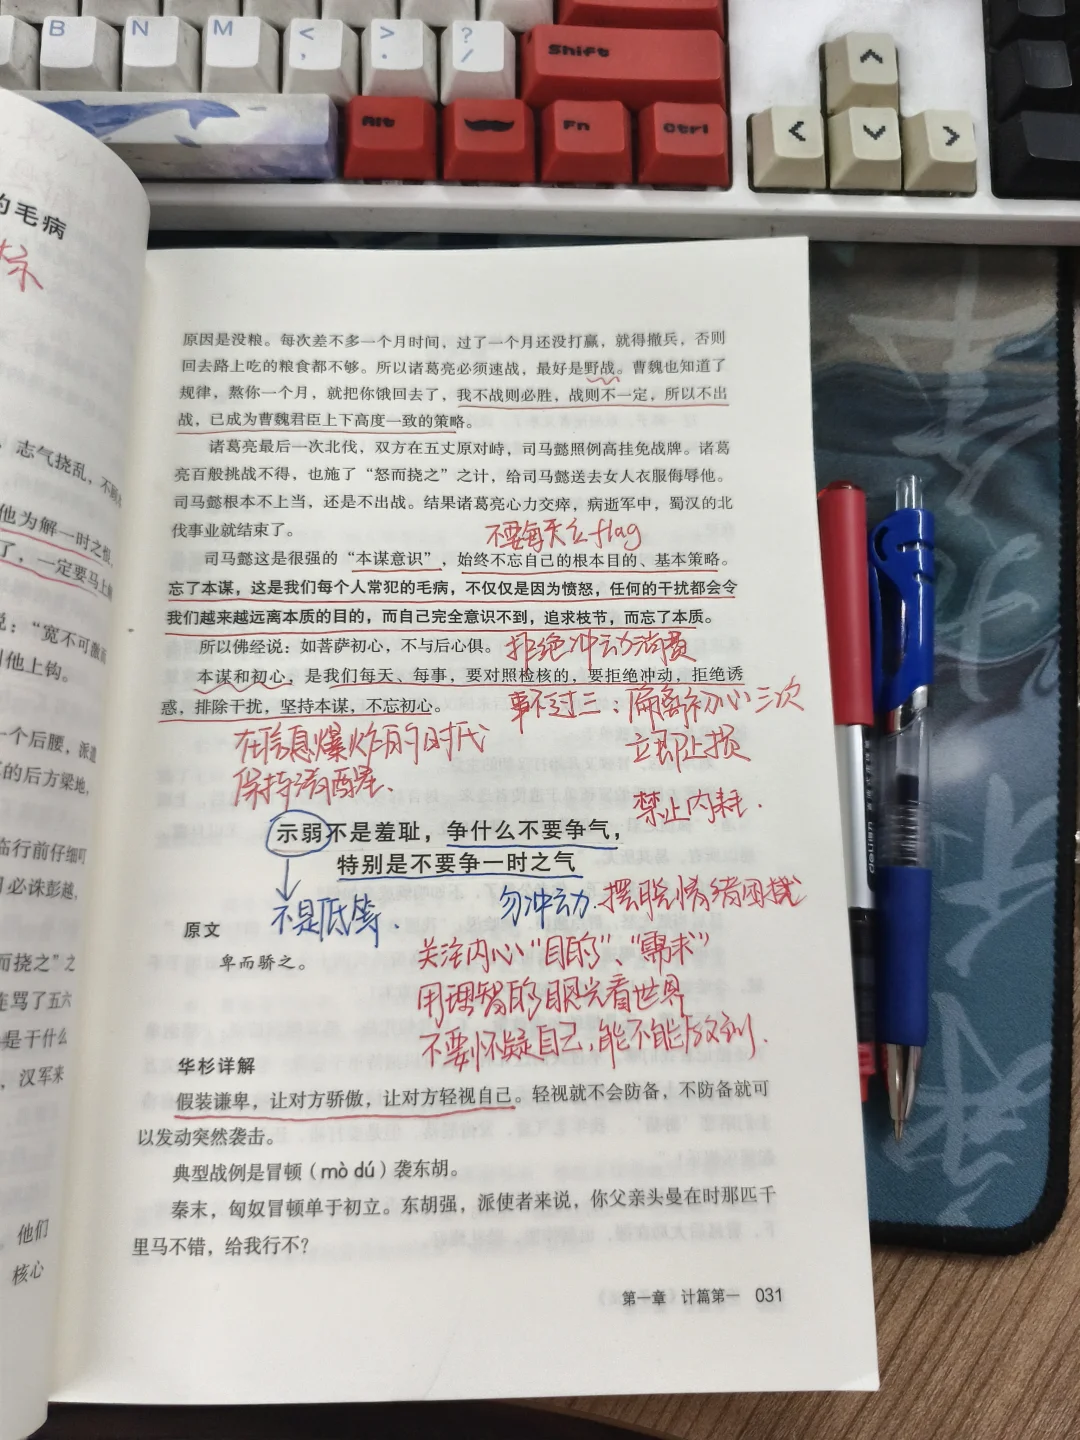 B N M < , > . ? /
Shift
Alt Fn Ctrl
的毛病
志气挠乱，不顾
他为解一时之恨，
了，一定要马上
说：“宽不可激而
他上钩。
一个后腰，派遣
的后方梁地，
临行前仔细叮
必诛彭越，
而挠之”之
连骂了五六
是干什么
，汉军来
他们
核心
原因是没粮。每次差不多一个月时间，过了一个月还没打赢，就得撤兵，否则
回去路上吃的粮食都不够。所以诸葛亮必须速战，最好是野战。曹魏也知道了
规律，熬你一个月，就把你饿回去了，我不战则必胜，战则不一定，所以不出
战，已成为曹魏君臣上下高度一致的策略。
诸葛亮最后一次北伐，双方在五丈原对峙，司马懿照例高挂免战牌。诸葛
亮百般挑战不得，也施了“怒而挠之”之计，给司马懿送去女人衣服侮辱他。
司马懿根本不上当，还是不出战。结果诸葛亮心力交瘁，病逝军中，蜀汉的北
伐事业就结束了。
不要每天立flag
司马懿这是很强的“本谋意识”，始终不忘自己的根本目的、基本策略。
忘了本谋，这是我们每个人常犯的毛病，不仅仅是因为愤怒，任何的干扰都会令
我们越来越远离本质的目的，而自己完全意识不到，追求枝节，而忘了本质。
所以佛经说：如菩萨初心，不与后心俱。
拒绝冲动消费
本谋和初心，是我们每天、每事，要对照检核的，要拒绝冲动，拒绝诱
惑，排除干扰，坚持本谋，不忘初心。
事不过三：偏离初心三次
立即止损
在信息爆炸的时代
保持清醒、
禁止内耗.
示弱不是羞耻，争什么不要争气，
特别是不要争一时之气
不是低等.
勿冲动.摆脱情绪困扰
原文
卑而骄之。
关注内心“目的”、“需求”
用理智的眼光看世界
不要怀疑自己,能不能做到.
华杉详解
假装谦卑，让对方骄傲，让对方轻视自己。轻视就不会防备，不防备就可
以发动突然袭击。
典型战例是冒顿（mò dú）袭东胡。
秦末，匈奴冒顿单于初立。东胡强，派使者来说，你父亲头曼在时那匹千
里马不错，给我行不？
第一章 计篇第一 031